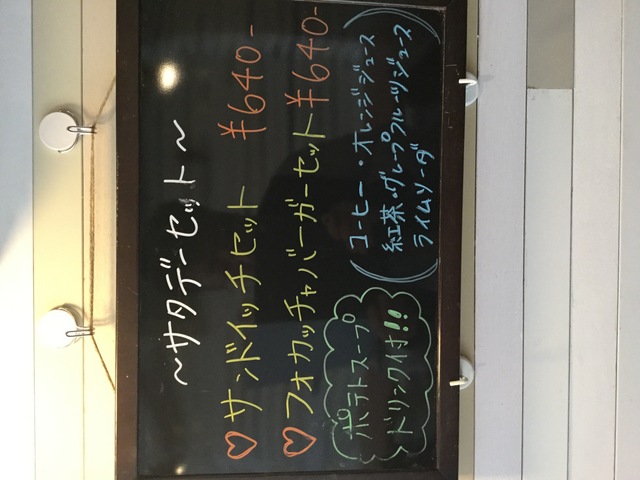 ～サタデーセット～
♡サンドイッチセット ¥640-
♡フォカッチャバーガーセット¥640-
ポテトスープ
ドリンク付!!
(コーヒー・オレンジジュース
紅茶・グレープフルーツジュース
ライムソーダ)